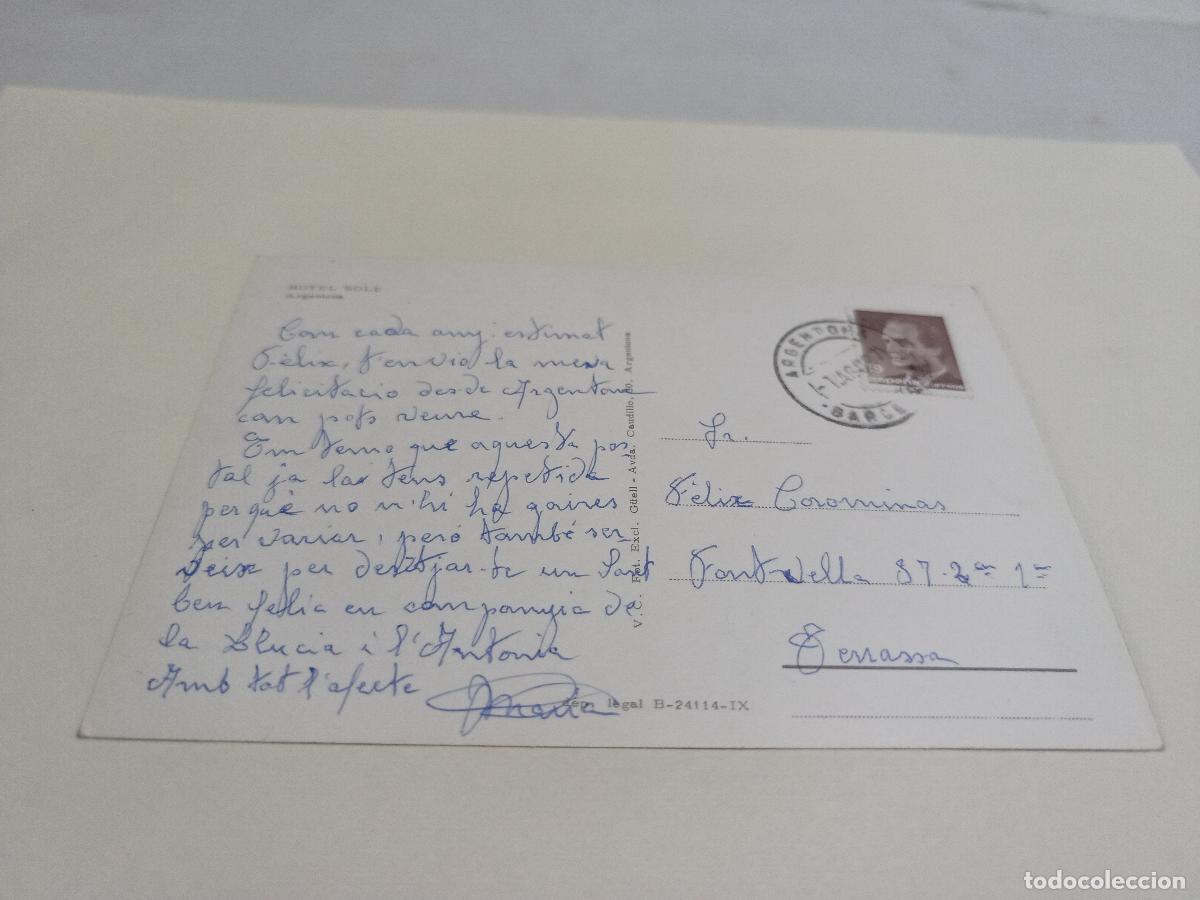 HOTEL SOLE
Argentona
Com cada any: estimat
Fèlix, t'envio la meva
felicitacio desde Argentona
com pots veure.
Em temo que aquesta pos
tal ja la tens repetida
perquè no n'hi ha gaires
per variar, però també ser-
veix per desitjar-te un Sant
ben feliç en companyia de
la Llucia i l'Antonia
Amb tot l'afecte Maria
V.C. Fot. Excl. Güell - Avda. Caudillo, Argentona
Dep. legal B-24114-IX
ARGENTONA
1 AGO
BARCE
Sr.
Fèlix Corominas
Font Vella 87-2on 1a
Terrassa
todocoleccion